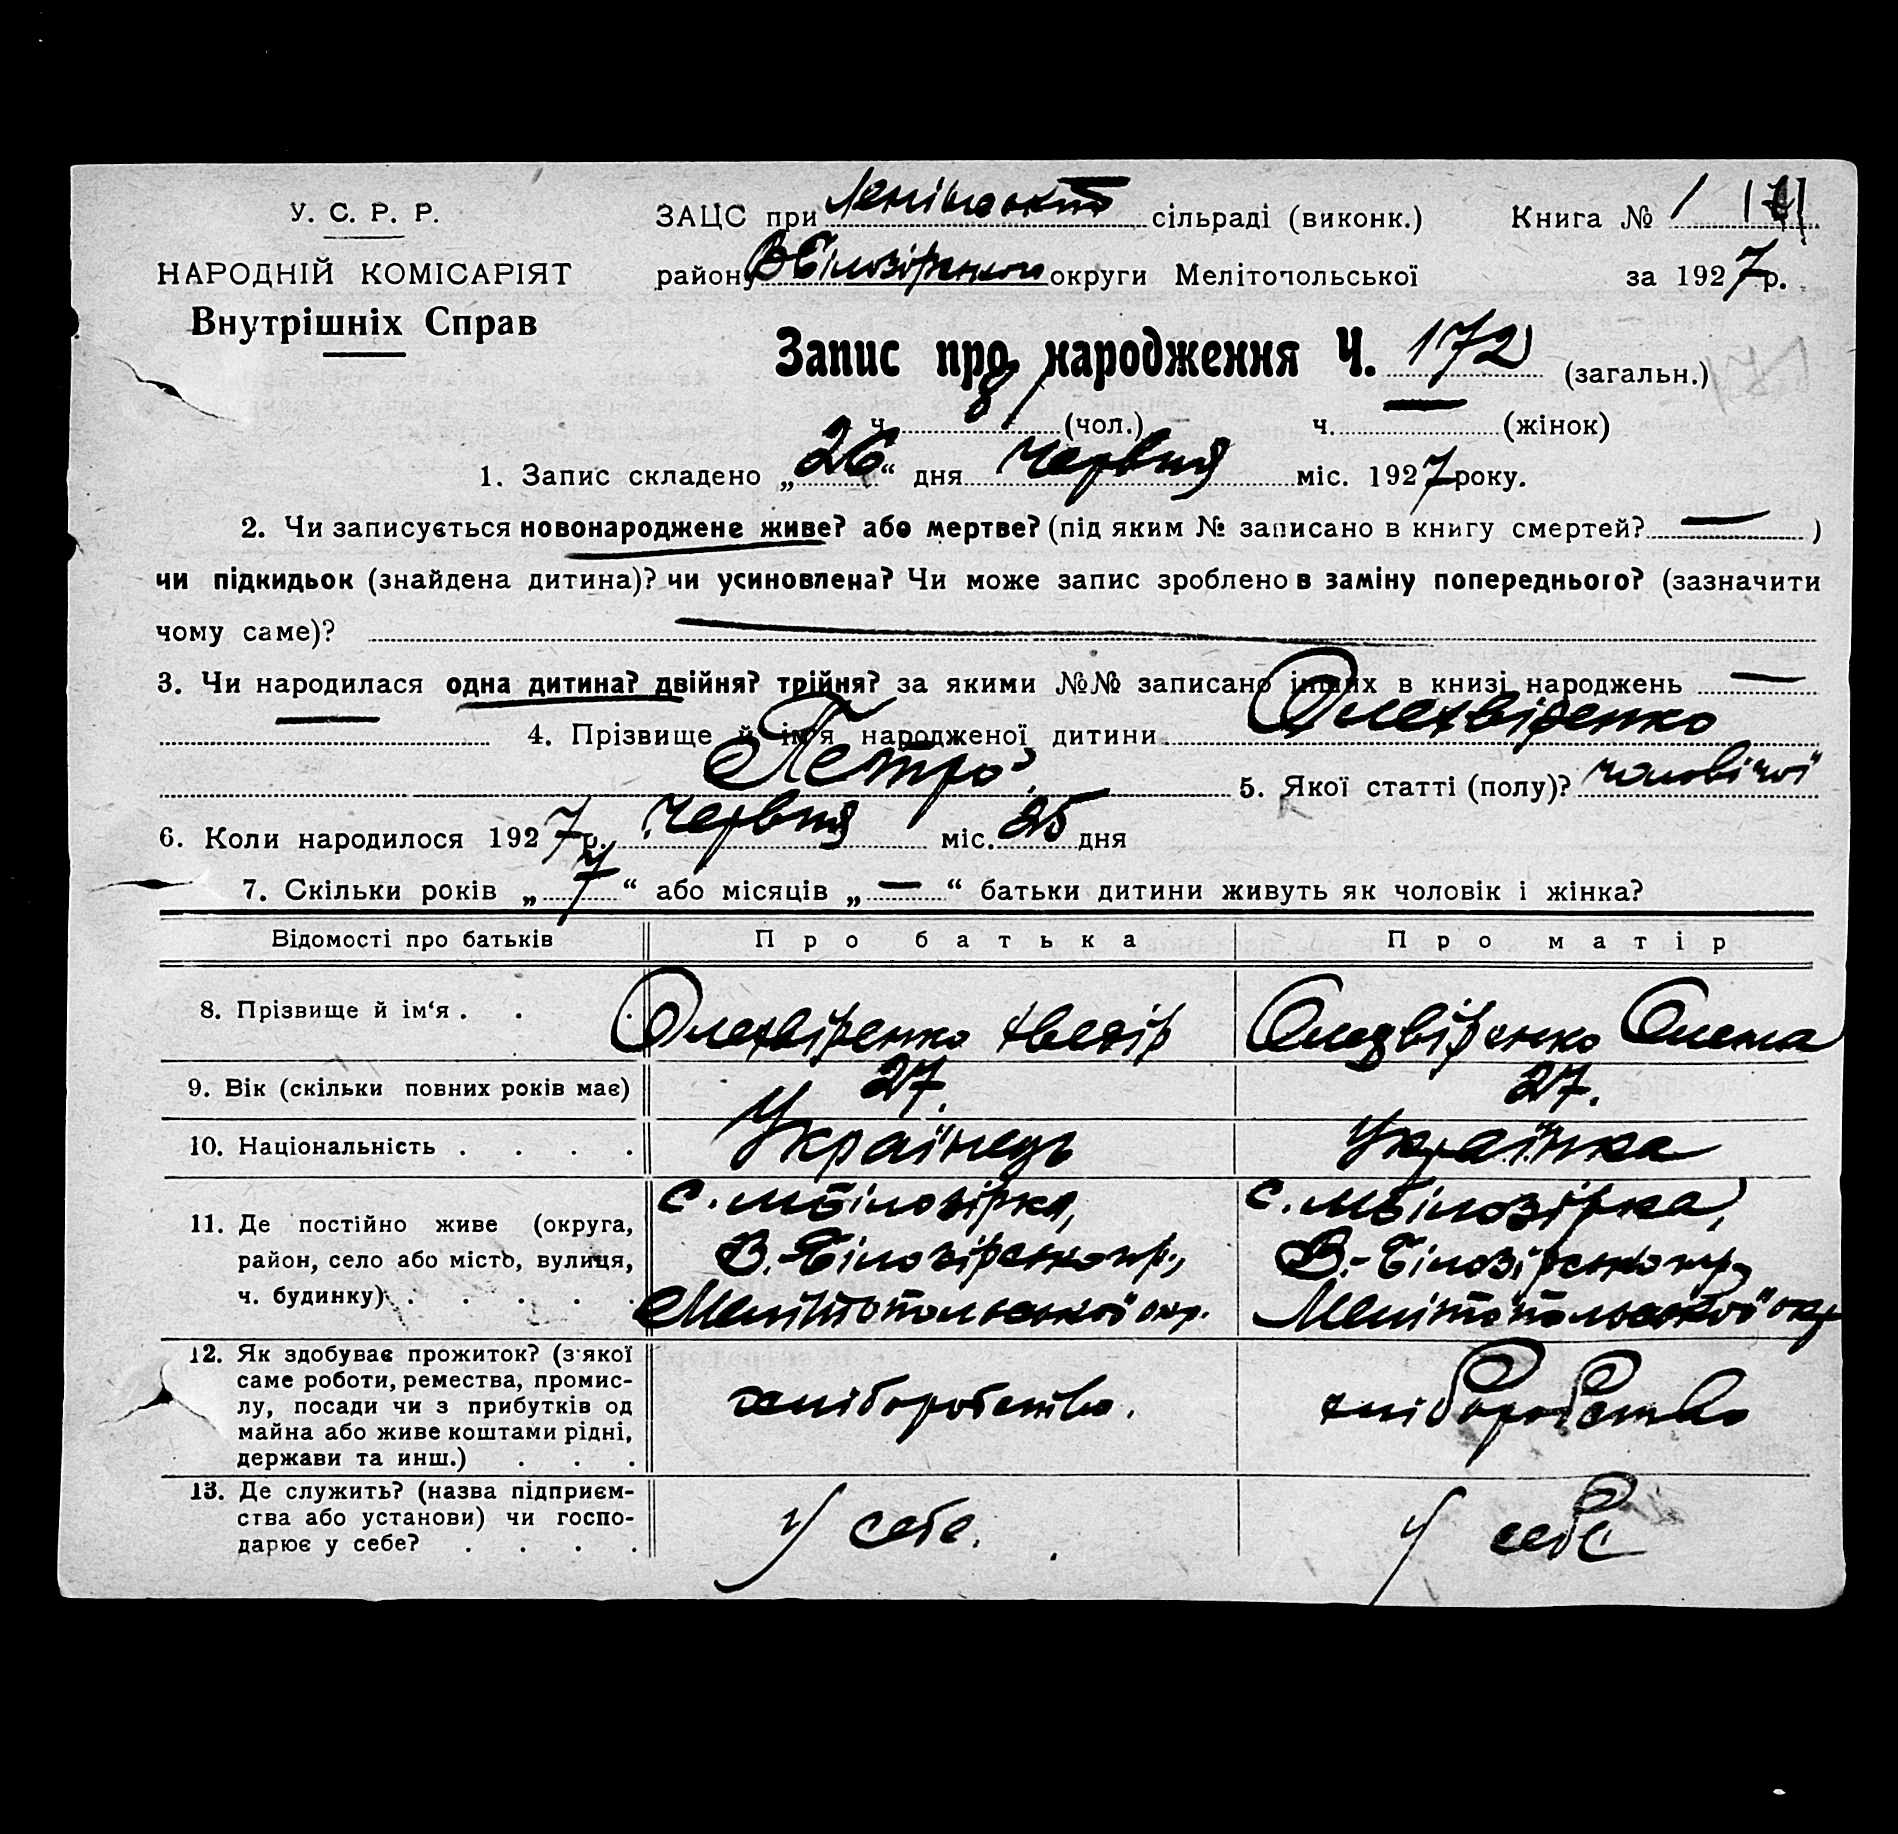 У. С. Р. Р.
НАРОДНІЙ КОМІСАРІЯТ
Внутрішніх Справ
ЗАЦС при Ленінській сільраді (виконк.) Книга № 1
району В Білозірського округи Мелітопольської за 1927 р.
Запис про народження Ч. 172 (загальн.)
ч. (чол.) ч. — (жінок)
1. Запис складено „26“ дня червня міс. 1927 року.
2. Чи записується новонароджене живе? або мертве? (під яким № записано в книгу смертей? — )
чи підкидьок (знайдена дитина)? чи усиновлена? Чи може запис зроблено в заміну попереднього? (зазначити
чому саме)? —
3. Чи народилася одна дитина? двійня? трійня? за якими №№ записано інших в книзі народжень —
— 4. Прізвище й ім'я народженої дитини Олехвіренко
Петро 5. Якої статті (полу)? чоловічої
6. Коли народилося 1927 р. червня міс. 25 дня
7. Скільки років „7“ або місяців „—“ батьки дитини живуть як чоловік і жінка?
Відомості про батьків Про батька Про матір
8. Прізвище й ім‘я . . . Олехвіренко Олехвіренко Олена
9. Вік (скільки повних років має) 27. 27.
10. Національність . . . . Українець Українка
11. Де постійно живе (округа, с. МБілозірка, с. МБілозірка,
район, село або місто, вулиця, В.-Білозірського р., В.-Білозірського р.,
ч. будинку) . . . . . Мелітопольської окр. Мелітопольської окр
12. Як здобуває прожиток? (з якої
саме роботи, ремества, промис-
лу, посади чи з прибутків од хліборобство. хліборобство
майна або живе коштами рідні,
держави та инш.) . . .
13. Де служить? (назва підприєм-
ства або установи) чи госпо- У себе. У себе
дарює у себе? . . . .